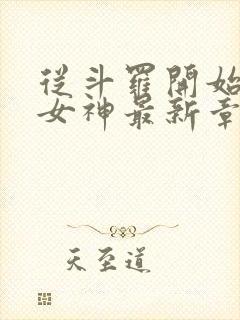 從斗羅開始
女神最新章
天至道